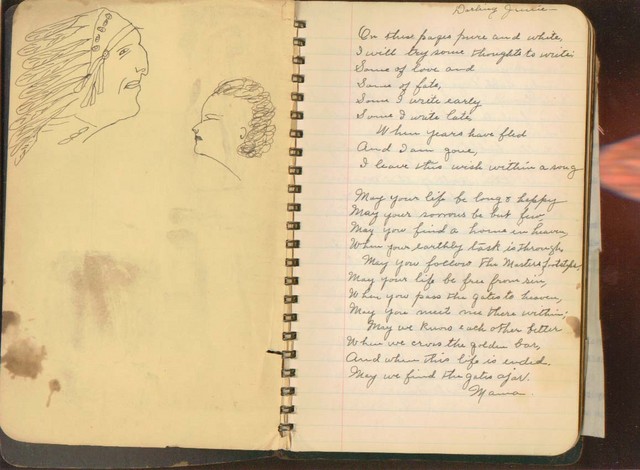 Darling
On these pages pure and white,
I will try some thoughts to write
Some of love and
Some of fate,
Some I write early
Some I write late
When years have fled
And I am gone,
I leave this wish within a song
May your life be long & happy
May your sorrows be but few,
May you find a home in heaven,
When your earthly task is through,
May you follow the Masters footsteps,
May your life be free from sin,
When you pass the gates to heaven,
May you meet me there within;
May we know each other better
When we cross the golden bar,
And when this life is ended.
May we find the gates ajar.
Mama